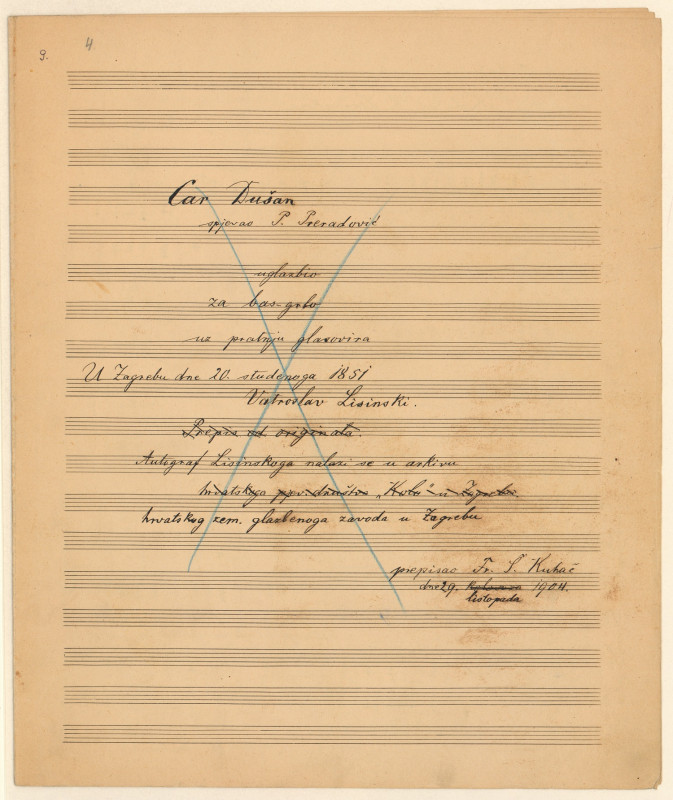 9.
4.
Car Dušan
spjevao P. Preradović
uglazbio
za bas-grlo
uz pratnju glasovira
U Zagrebu dne 20. studenoga 1851
Vatroslav Lisinski.
Prepis od originala.
Autograf Lisinskoga nalazi se u arkivu
hrvatskoga pjev. društva "Kola" u Zagrebu.
hrvatskog zem. glazbenoga zavoda u Zagrebu
prepisao Fr. Š. Kuhač
dne 29. 1904.
listopada